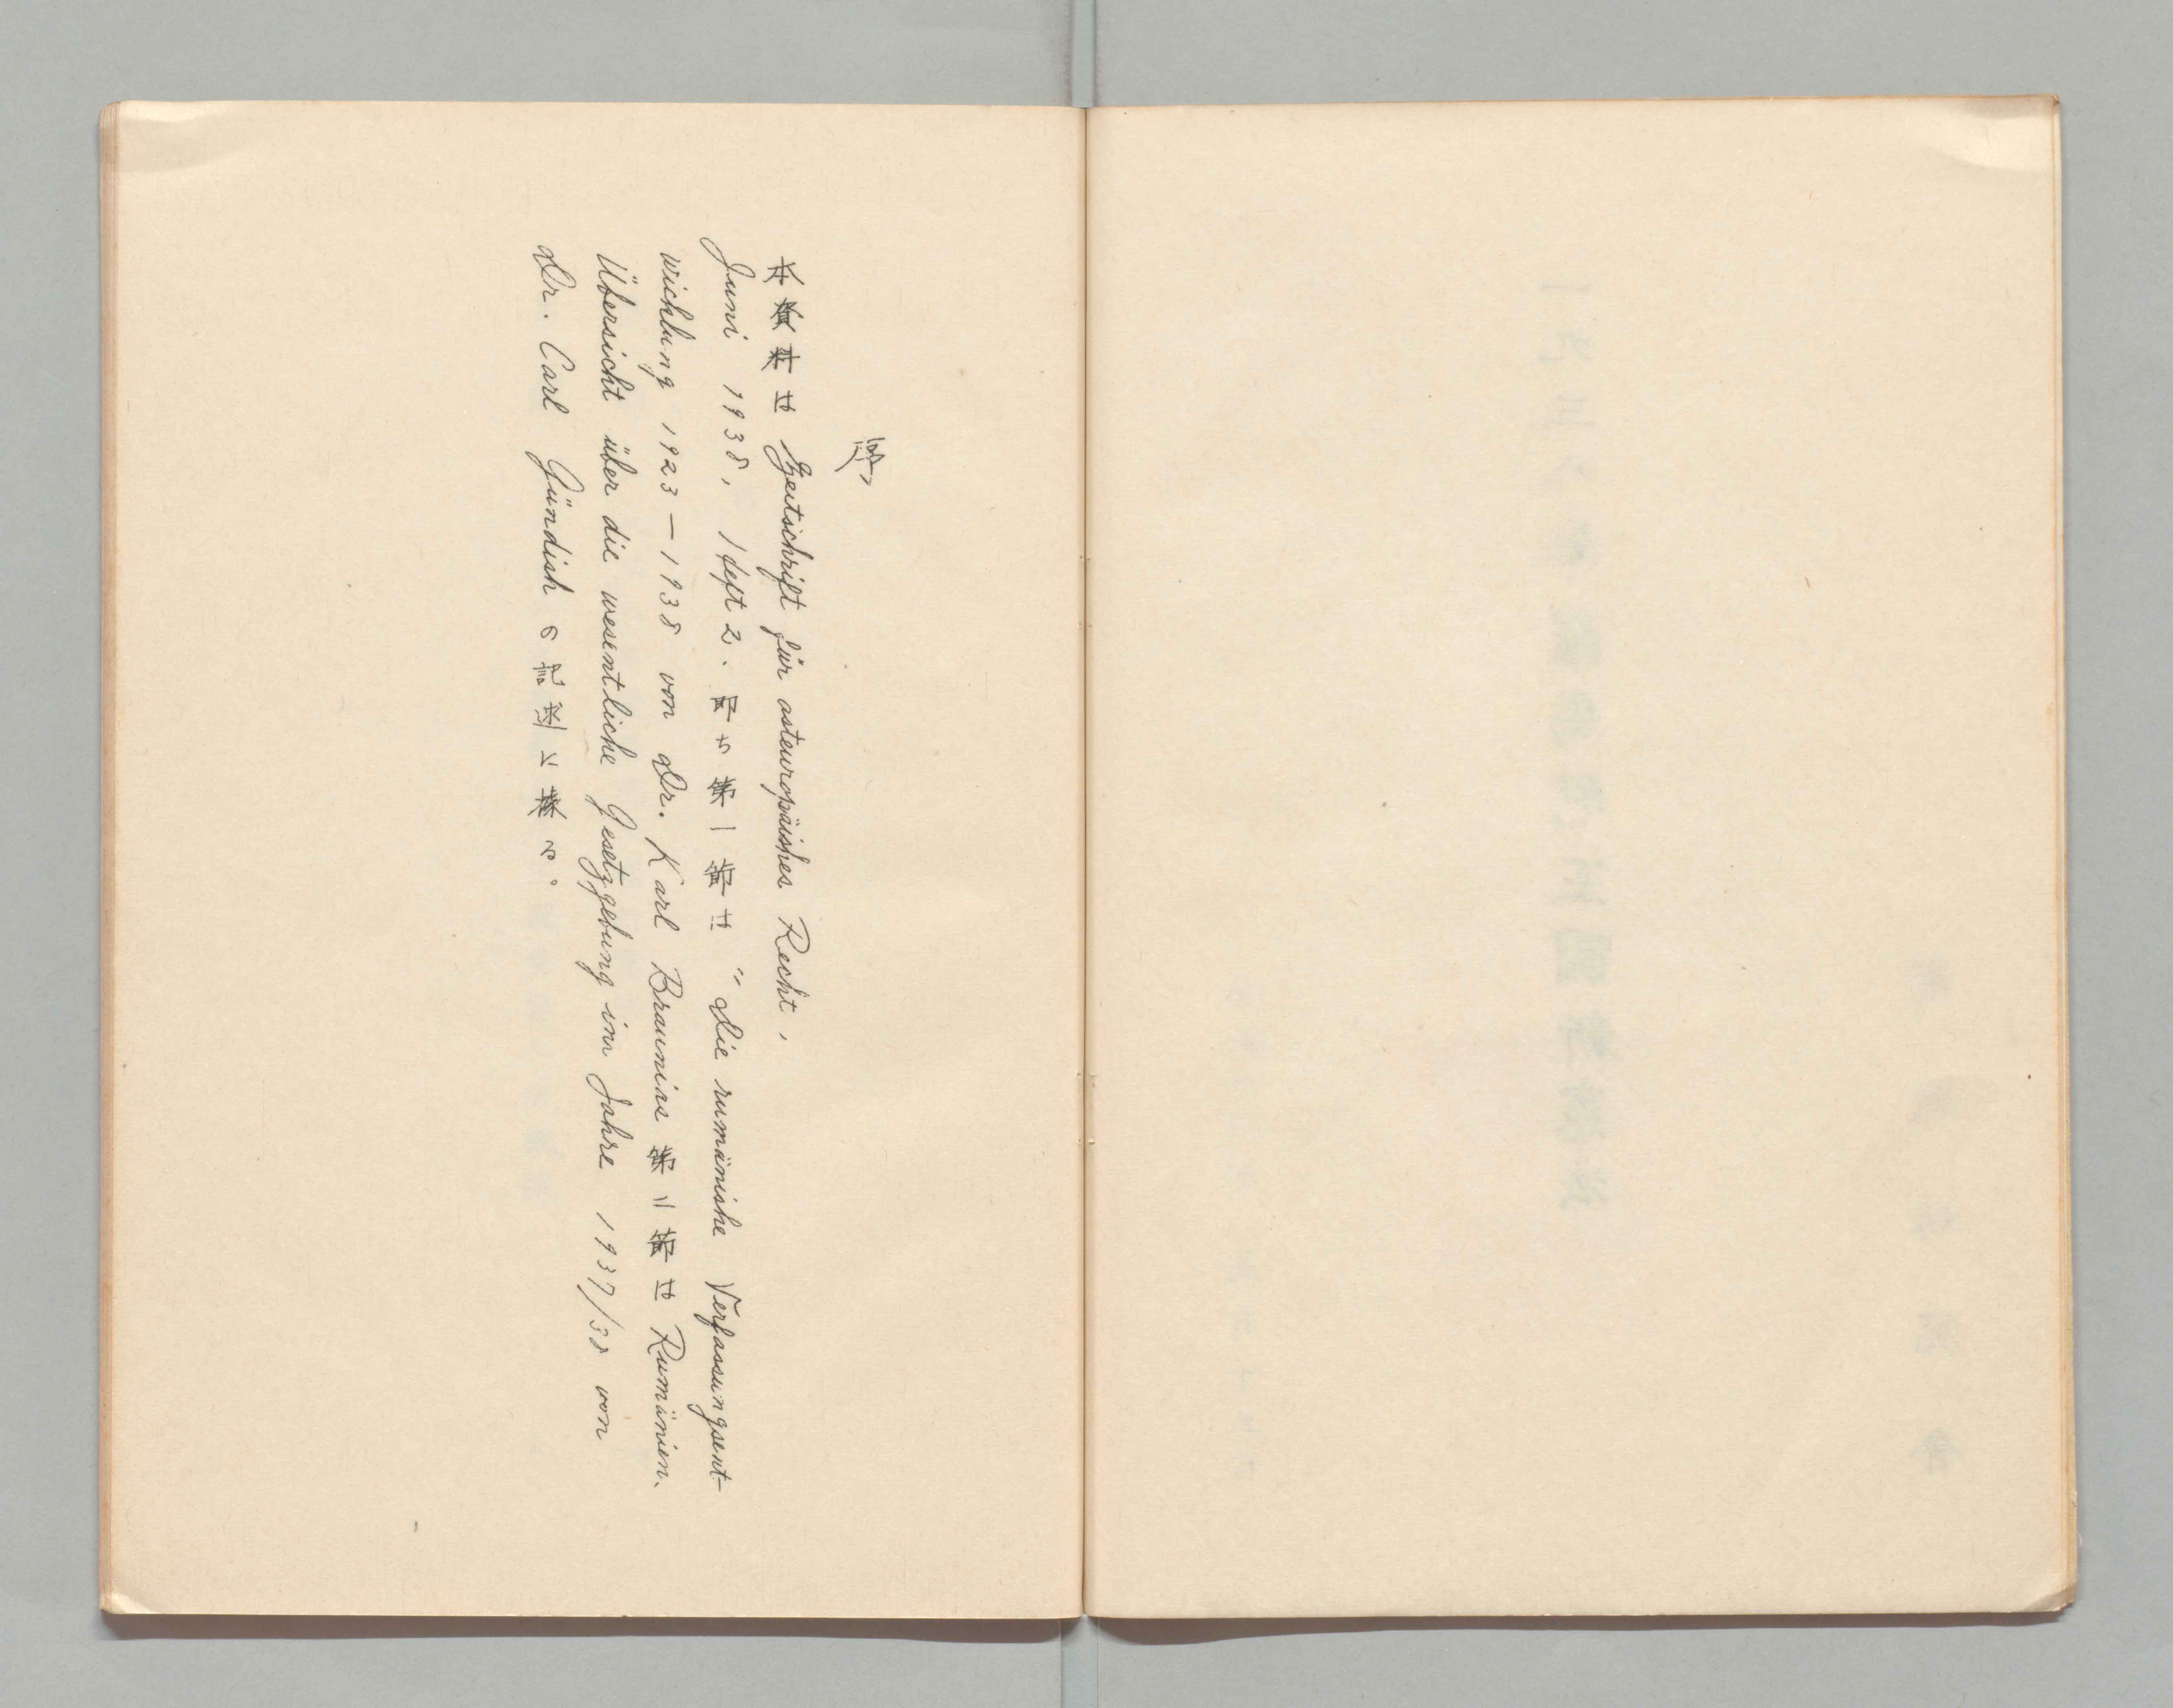 序
本資料は Zeitschrift für osteuropäishes Recht,
Juni 1938, Heft 2. 即ち第一節は "Die rumänishe Verfassungsent-
wichlung 1923—1938 von Dr. Karl Braunias 第二節は Rumänien.
Übersicht über die wesentliche Gesetzgebung im Jahre 1937/38 von
Dr. Carl Gündish の記述に據る。